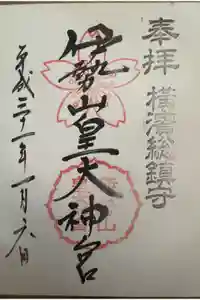 奉拝 横濱総鎮守
伊勢山皇大神宮
平成三十一年一月六日